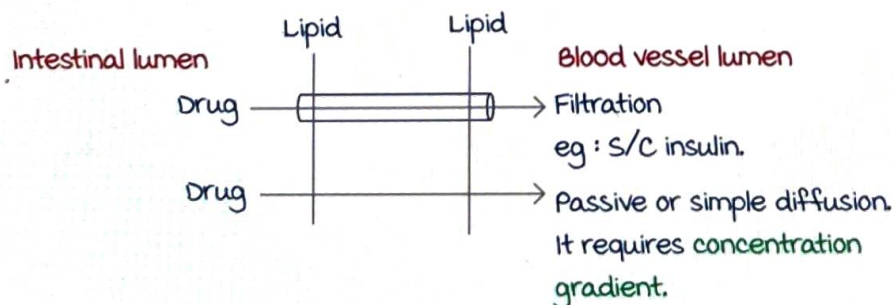 Lipid
Lipid
Intestinal lumen
Blood vessel lumen
Drug
Filtration
eg : S/C insulin.
Drug
Passive or simple diffusion.
It requires concentration
gradient.